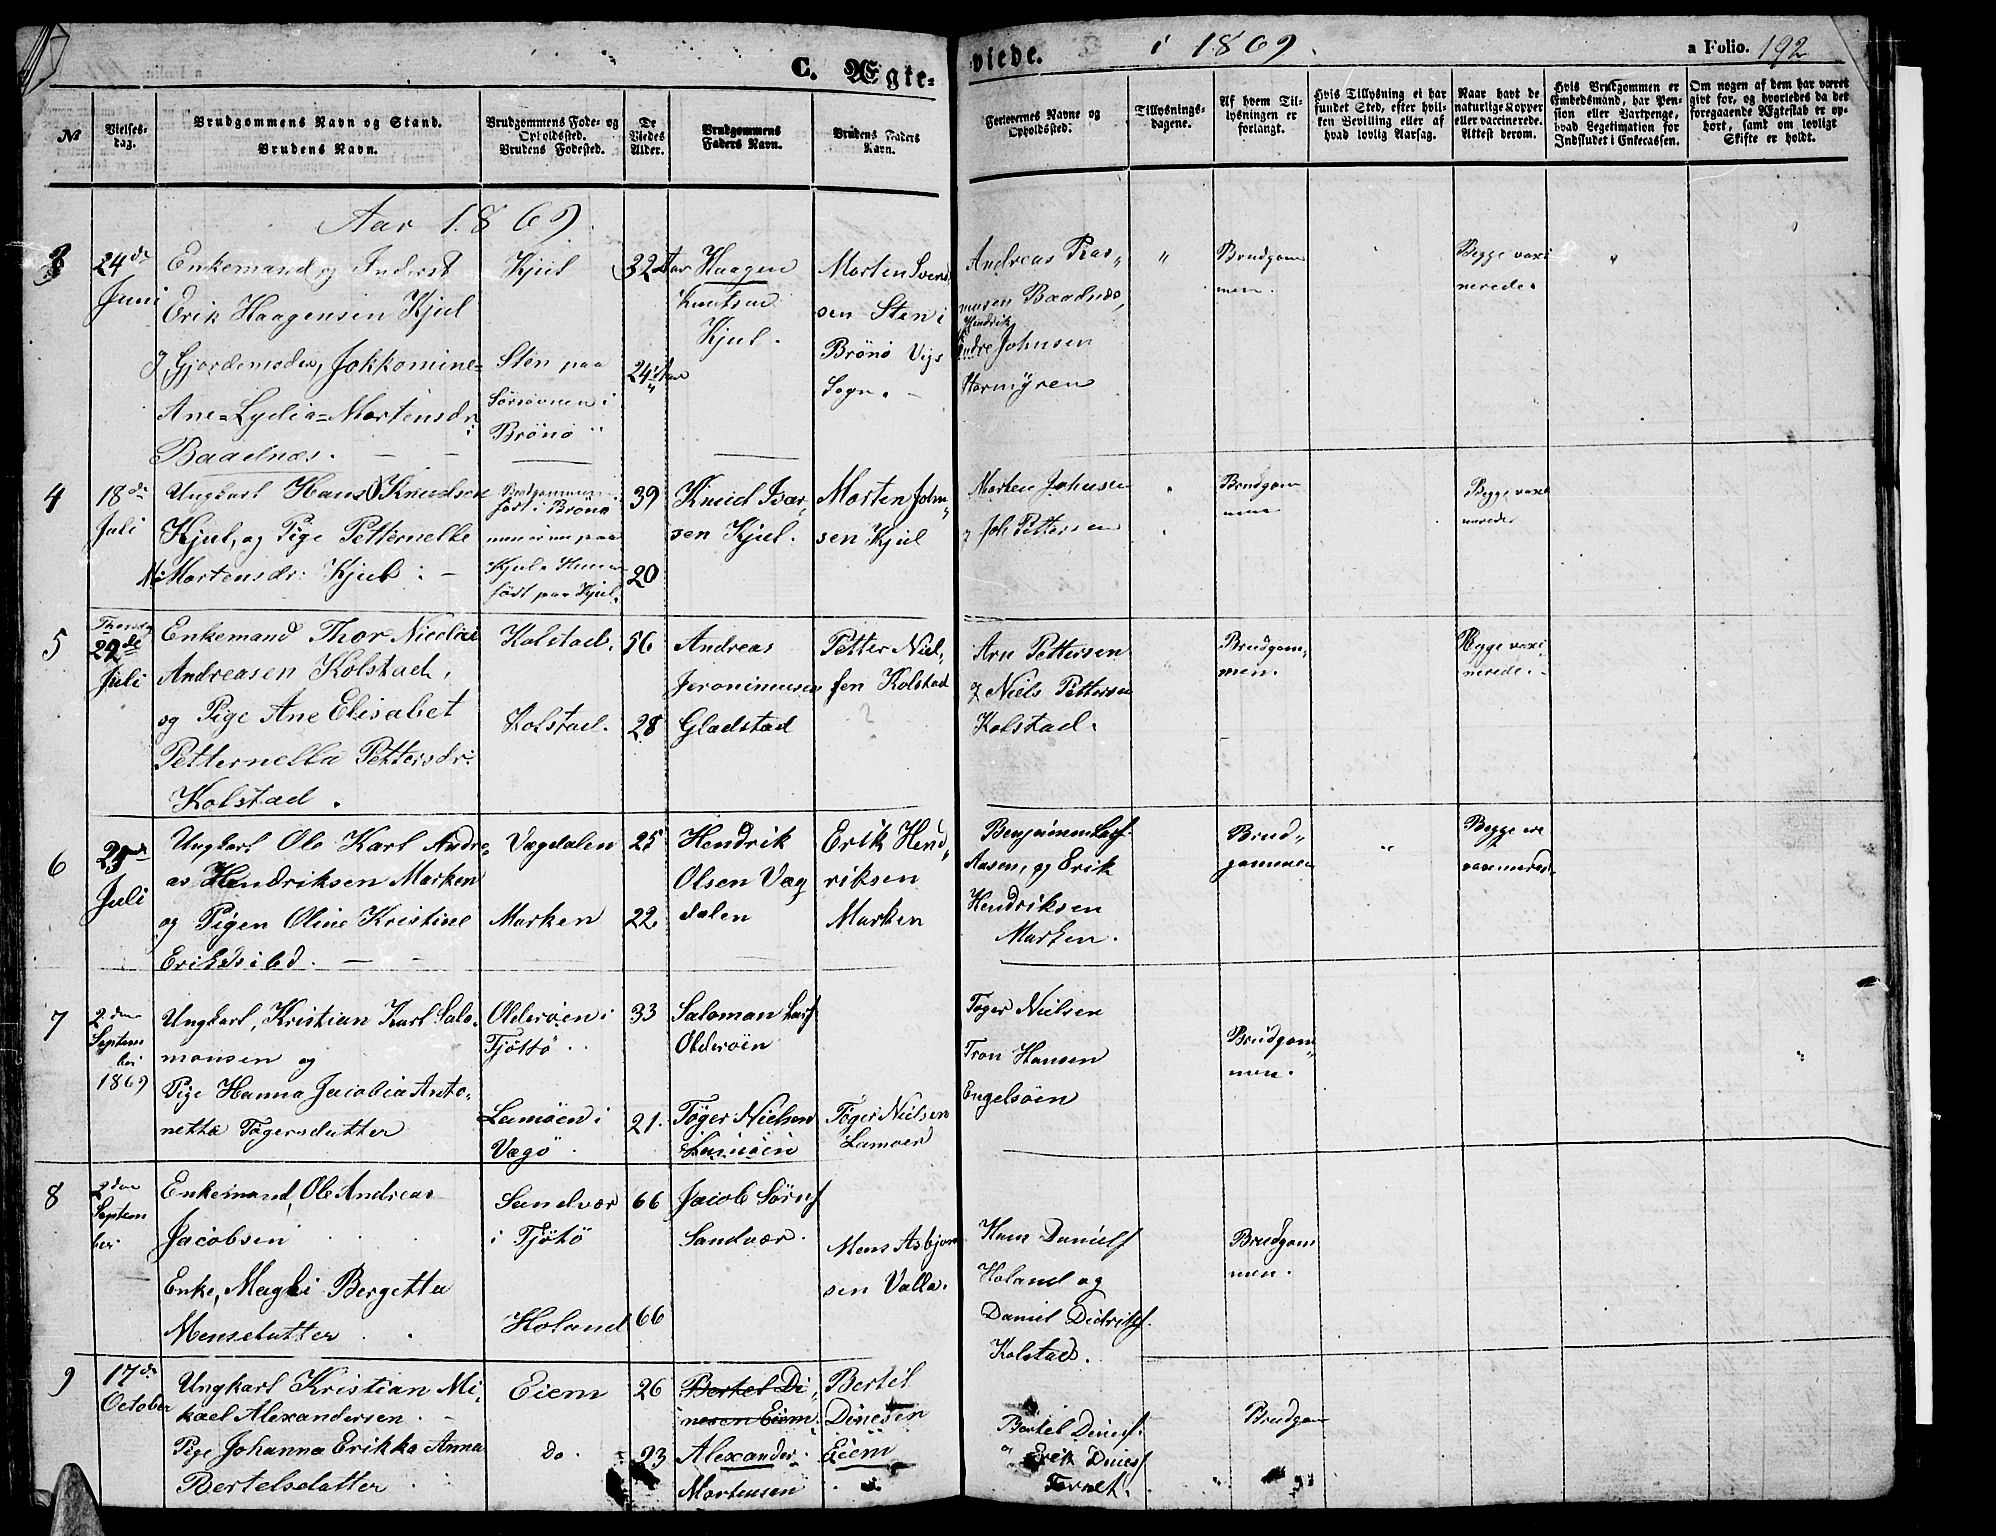 C. Ægte-
viede.
i 1869.
a Folio. 192
No
Vielses-
dag.
Brudgommens Navn og Stand.
Brudens Navn.
Brudgommens Føde- og
Opholdssted.
Brudens Fødested.
De
Viedes
Alder.
Brudgommens
Faders Navn.
Brudens Faders
Navn.
Forlovernes Navne og
Opholdssted.
Tillysnings-
dagene.
Af hvem Til-
lysningen er
forlangt.
Hvis Tillysning ei har
fundet Sted, efter hvil-
ken Bevilling eller af
hvad lovlig Aarsag.
Naar havt de
naturlige Kopper
eller vaccinerede.
Attest derom.
Hvis Brudgommen er
Embedsmand, har Pen-
sion eller Vartpenge,
hvad Legitimation for
Indskudet i Enkecassen.
Om nogen af dem har været
gift før, og hvorledes da det
foregaaende Ægteskab er op-
hørt, samt om lovligt
Skifte er holdt.
Aar 1869.
3
24de
Juni
Enkemand og Inderst
Erik Haagensen Kjul
og Gjordemoder, Jokkomine=
Ane=Lydia=Mortensdr:
Baadnæs.
Kjul
Sten paa
Brönö
32 Aar
24 Aar
Haagen
Knutsen
Kjul.
Morten Svend
sen Sten i
Brönö Vigs
Sogn.
Andreas Ras„
musen Baadnæs,
Hendrik
Andre Johnsen
Stormyren
Brudgom
men.
Begge vaxi
nerede.
4
18de
Juli
Ungkarl Hans Knudsen
Kjul, og Pige Petternelle
Mortensdr: Kjul:
Brudgommen
født i Brönö
men er nu paa
Kjul.
født paa Kjul.
39
20
Knud Ivar
sen Kjul.
Morten John„
sen Kjul
Morten Johnsen
og Joh Pettersen
Brudgom
men
Begge vaxi
nerede
5
Thorsdag
22de
Juli
Enkemand Thor Nicolai
Andreasen Kolstad,
og Pige Ane Elisabet
Petternella Pettersdr:
Kolstad.
Kolstad.
Kolstad.
56
28
Andreas
Jeronimusen
Gladstad
Petter Niel„
sen Kolstad
Arn Pettersen
og Niels Pettersen
Kolstad.
Brudgom„
men.
Begge vaxi
nerede.
6
25de
Juli
Ungkarl Ole Karl Andre„
as Hendriksen Marken
og Pigen Oline Kristine
Eriksd ibd.
Vægdalen
Marken
25
22
Hendrik
Olsen Væg
dalen
Erik Hend„
riksen
Marken
Benjamen Larf.
Aasen, og Erik
Hendriksen
Marken.
Brud„
gommen
Begge ere
vaxinered
7
2den
Septem
ber
1869
Ungkarl, Kristian Karl Salo„
monsen og
Pige Hanna Jacobia Anto„
netta Tøgersdatter
Olderøen i
Tjöttö.
Lamøen i
Vegø
33
21.
Saloman Larf
Olderøen
Tøger Nielsen
Lamøen
Tøger Nielsen
Lamøen
Tøger Nielsen
Tron Hansen
Engelsøen
Brudgom„
men.
8
2den
Septem
ber
Enkemand, Ole Andreas
Jacobsen
Enke, Magli Bergetta
Mensdatter
Sandvær
i Tjötö
Holand
66
66
Jacob Sörns
Sandvær.
Mens Asbjørn
sen Valla.
Hans Danielf
Holand og
Daniel Didrikf.
Kolstad.
Brudgom
men.
9
17de
October
Ungkarl Kristian Mi„
kael Alexandersen
Pige Johanna Erikka Anna
Bertelsdatter
Eiem
do.
26
23
Bertel Di„
nesen Eiem.
Alexander
Mortensen
Bertel
Dinesen
Eiem
Bertel Dinesf
og Erik Dinesf
Tørnet.
Brudgom